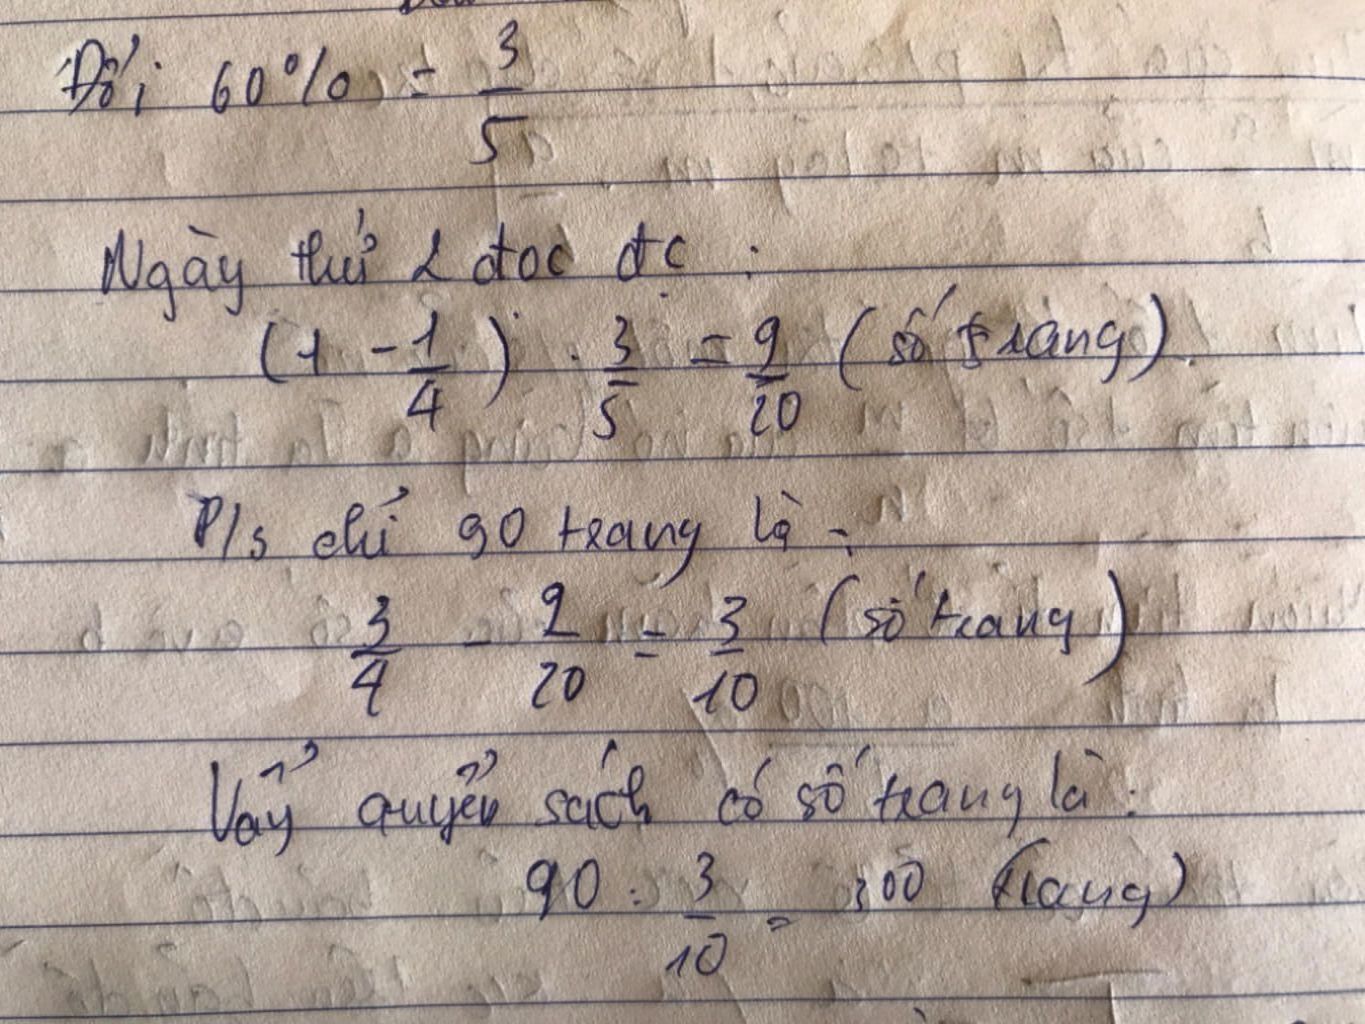 Đổi 60% = 3/5
Ngày thứ 2 đọc đc :
(1 - 1/4) . 3/5 = 9/20 (số trang).
P/s chỉ 90 trang là :
3/4 - 9/20 = 3/10 (số trang)
Vậy quyển sách có số trang là :
90 : 3/10 = 300 (trang)